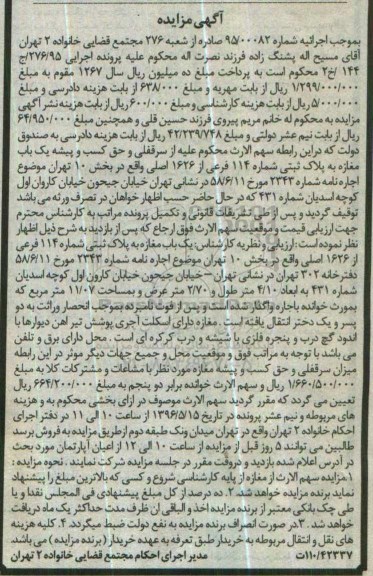 آگهی مزایده
بموجب اجرائیه شماره ۹۵/۰۰۰۸۲ صادره از شعبه ۲۷۶ مجتمع قضایی خانواده ۲ تهران
آقای مسیح اله پشنگ زاده فرزند نصرت اله محکوم علیه پرونده اجرایی ۲۷۶/۹۵/ج
۱۴۴ /خ۲ محکوم است به پرداخت مبلغ ده میلیون ریال سال ۱۲۶۷ مقوم به مبلغ
۱/۲۹۹/۰۰۰/۰۰۰ ریال از بابت مهریه و مبلغ ۶۳۸/۰۰۰ ریال از بابت هزینه دادرسی و مبلغ
۵/۰۰۰/۰۰۰ ریال از بابت هزینه کارشناسی و مبلغ ۶۰۰/۰۰۰ ریال از بابت هزینه نشر آگهی
مزایده به محکوم له خانم مریم پیروی فرزند حسین قلی و همچنین مبلغ ۶۴/۹۵۰/۰۰۰
ریال از بابت نیم عشر دولتی و مبلغ ۴۲/۲۳۹/۷۴۸ ریال از بابت هزینه دادرسی به صندوق
دولت که دراین رابطه سهم الارث محکوم علیه از سرقفلی و حق کسب و پیشه یک باب
مغازه به پلاک ثبتی شماره ۱۱۴ فرعی از ۱۶۲۶ اصلی واقع در بخش ۱۰ تهران موضوع
اجاره نامه شماره ۲۳۴۳ مورخ ۵۸/۶/۱۱ در نشانی تهران خیابان جیحون خیابان کاروان اول
کوچه اسدیان شماره ۴۳۱ که در حال حاضر حسب اظهار خواهان در تصرف ورثه می باشد
توقیف گردید و پس از طی تشریفات قانونی و تکمیل پرونده مراتب به کارشناس محترم
جهت ارزیابی قیمت و موقعیت سهم الارث فوق ارجاع که پس از بازدید به شرح ذیل اظهار
نظر نموده است: ارزیابی و نظریه کارشناس: یک باب مغازه به پلاک ثبتی شماره ۱۱۴ فرعی
از ۱۶۲۶ اصلی واقع در بخش ۱۰ تهران موضوع اجاره نامه شماره ۲۳۴۳ مورخ ۵۸/۶/۱۱
دفترخانه ۳۰۲ تهران در نشانی تهران – خیابان جیحون خیابان کارون اول کوچه اسدیان
شماره ۴۳۱ به ابعاد ۴/۱۰ متر طول و ۲/۷۰ متر عرض و بمساحت ۱۱/۰۷ متر مربع که
بمورث خوانده باجاره واگذار شده است و پس از فوت نامبرده بموجب انحصار وراثت به دو
پسر و یک دختر انتقال یافته است . مغازه دارای اسکلت آجری پوشش تیر آهن دیوارها با
اندود گچ درب و پنجره فلزی با شیشه و درب کرکره ای است . محل دارای برق و تلفن
می باشد با توجه به مراتب فوق و موقعیت محل و جمیع جهات دیگر موثر در این رابطه
میزان سرقفلی و حق کسب و پیشه مغازه مورد نظر با مشاعات و مشترکات کلا به مبلغ
۱/۶۶۰/۵۰۰/۰۰۰ ریال و سهم الارث خوانده برابر دو پنجم به مبلغ ۶۶۴/۲۰۰/۰۰۰ ریال
تعیین می گردد که مقرر گردید سهم الارث موصوف در ازای بخشی محکوم به و هزینه های
مربوطه و نیم عشر پرونده در تاریخ ۱۳۹۶/۵/۱۵ از ساعت ۱۰ الی ۱۱ در دفتر اجرای
احکام خانواده ۲ تهران واقع در تهران میدان ونک طبقه دوم ازطریق مزایده به فروش برسد
طالبین می توانند ۵ روز قبل از مزایده از ساعت ۱۰ الی ۱۲ از اعیان آپارتمان مورد بحث
در آدرس اعلام شده بازدید و دروقت مقرر در جلسه مزایده شرکت نمایند . نحوه مزایده :
۱.مزایده سهم الارث از مغازه از پایه کارشناسی شروع و کسی که بالاترین مبلغ را پیشنهاد
نماید برنده مزایده خواهد شد .۲. ده درصد از کل مبلغ پیشنهادی فی المجلس نقدا و یا
طی چک بانکی معتبر از برنده مزایده اخذ و الباقی ان ظرف مدت حداکثر یک ماه دریافت
خواهد شد .۳.در صورت انصراف برنده مزایده به نفع دولت ضبط میگردد .۴. کلیه هزینه
های نقل و انتقال مربوطه به خریدار طبق تعرفه به عهده خریدار (برنده مزایده) می باشد.
۱۱۰/۴۲۳۳۷ت مدیر اجرای احکام مجتمع قضایی خانواده ۲ تهران